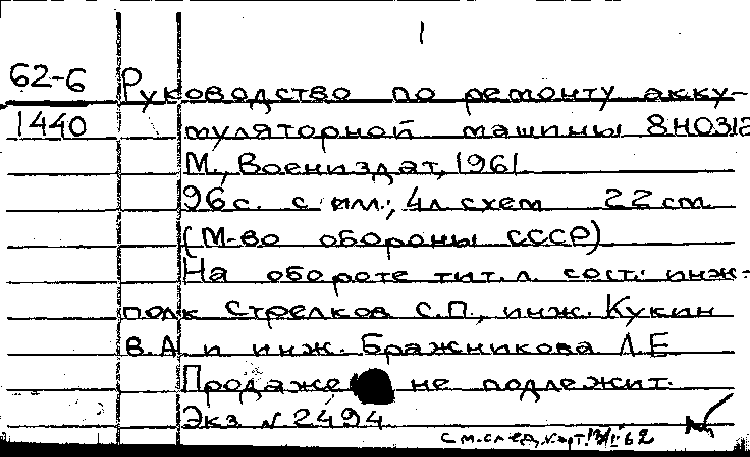 1
62-6 Руководство по ремонту акку-
1440 муляторной машины 8Н0312
М., Воениздат, 1961.
96с. с илл.; 4л. схем 22 см
(М-во обороны СССР)
На обороте тит. л. сост.: инж-
полк Стрелков С.П., инж. Кукин
В.А и инж. Бражникова Л.Е
Продаже не подлежит.
Экз № 2494
см. след. карт.